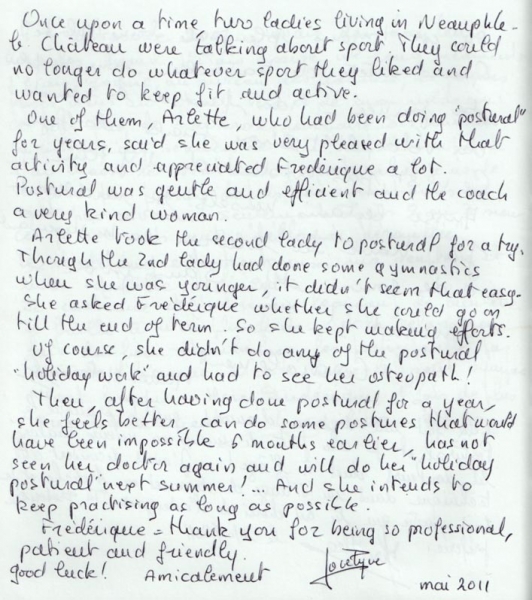 Once upon a time, two ladies living in Neauphle-
le Château were talking about sport. They could
no longer do whatever sport they liked and
wanted to keep fit and active.
One of them, Arlette, who had been doing "postural"
for years, said she was very pleased with that
activity and appreciated Frédérique a lot.
Postural was gentle and efficient and the coach
a very kind woman.
Arlette took the second lady to postural for a try.
Though the 2nd lady had done some gymnastics
when she was younger, it didn't seem that easy.
She asked Frédérique whether she could go on
till the end of term. So she kept making efforts.
Of course, she didn't do any of the postural
"holiday work" and had to see her osteopath!
Then, after having done postural for a year,
she feels better, can do some postures that would
have been impossible 6 months earlier, has not
seen her doctor again and will do her "holiday
postural" next summer!... And she intends to
keep practising as long as possible.
Frédérique = thank you for being so professional,
patient and friendly.
good luck! Amicalement Jocelyne
mai 2011